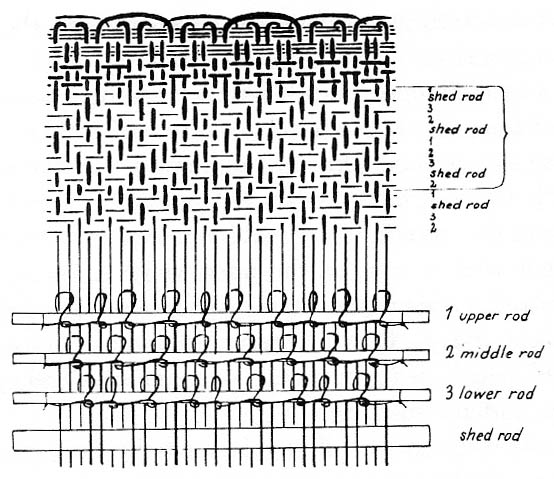 1
shed rod
3
2
shed rod
1
2
3
shed rod
2
1
shed rod
3
2
1 upper rod
2 middle rod
3 lower rod
shed rod